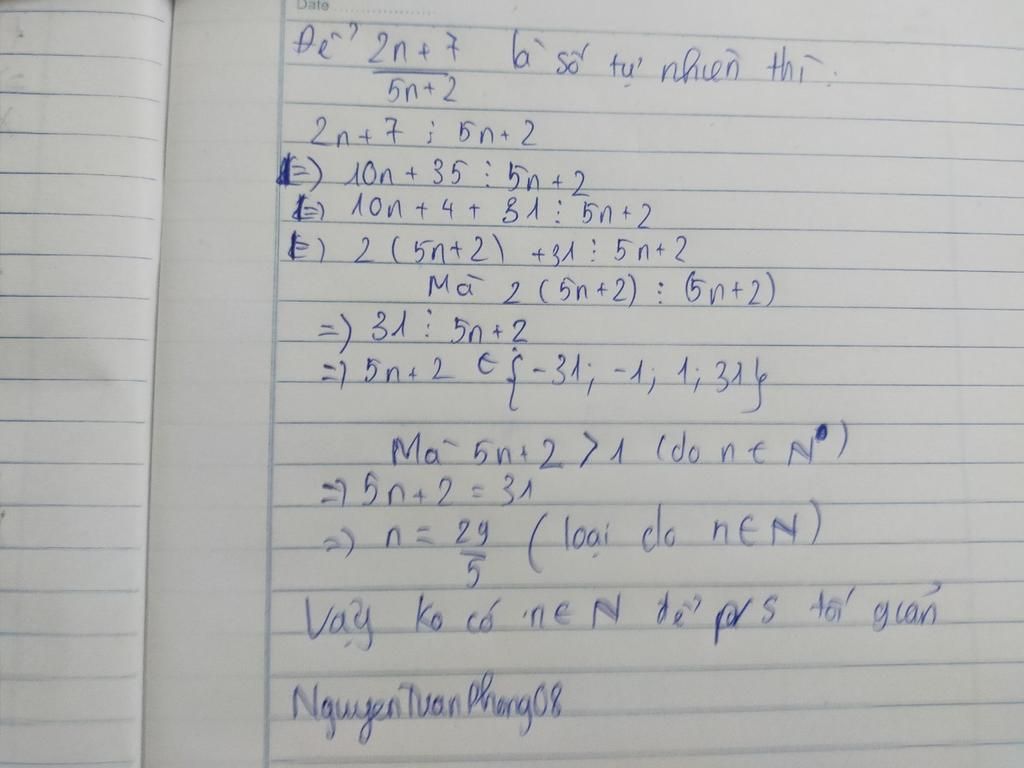 Date
Để 2n+7/5n+2 là số tự nhiên thì:
2n+7 ⋮ 5n+2
=) 10n+35 ⋮ 5n+2
=) 10n+4+31 ⋮ 5n+2
=) 2(5n+2) +31 ⋮ 5n+2
Mà 2(5n+2) ⋮ (5n+2)
=) 31 ⋮ 5n+2
=) 5n+2 ∈ {-31; -1; 1; 31}
Mà 5n+2 > 1 (do n ∈ N)
=) 5n+2 = 31
=) n = 29/5 (loại do n ∈ N)
Vậy ko có n ∈ N để p/s tối giản
NguyenTuanPhong08